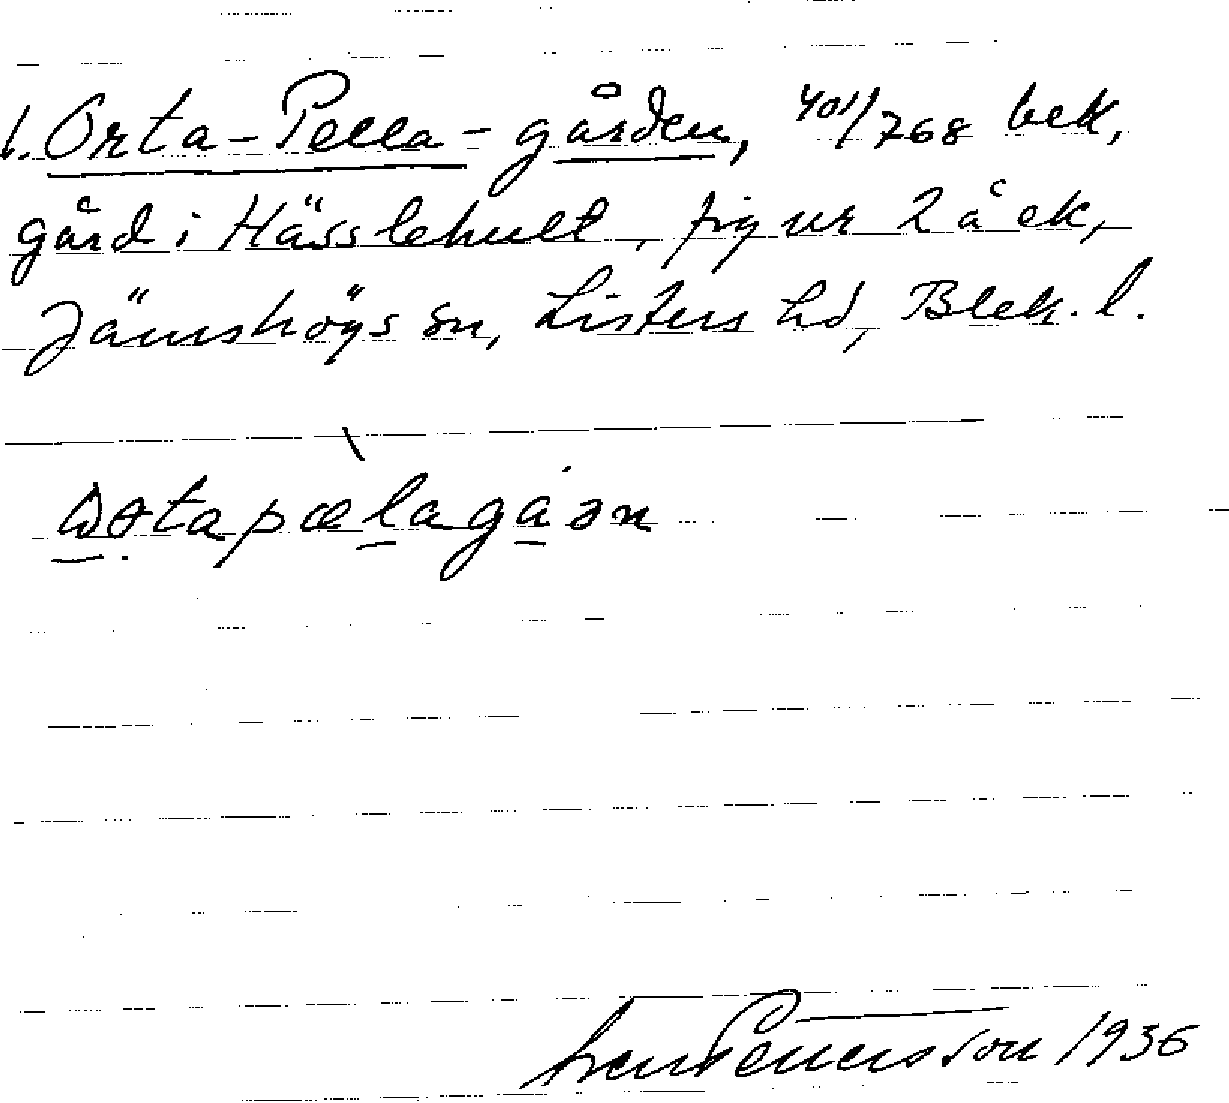 1. Orta-Pella-gården, 401/768 bek,
gård i Hässlehult, figur 2 å ek,
Jämshögs sn, Listers hd, Blek. l.
1936